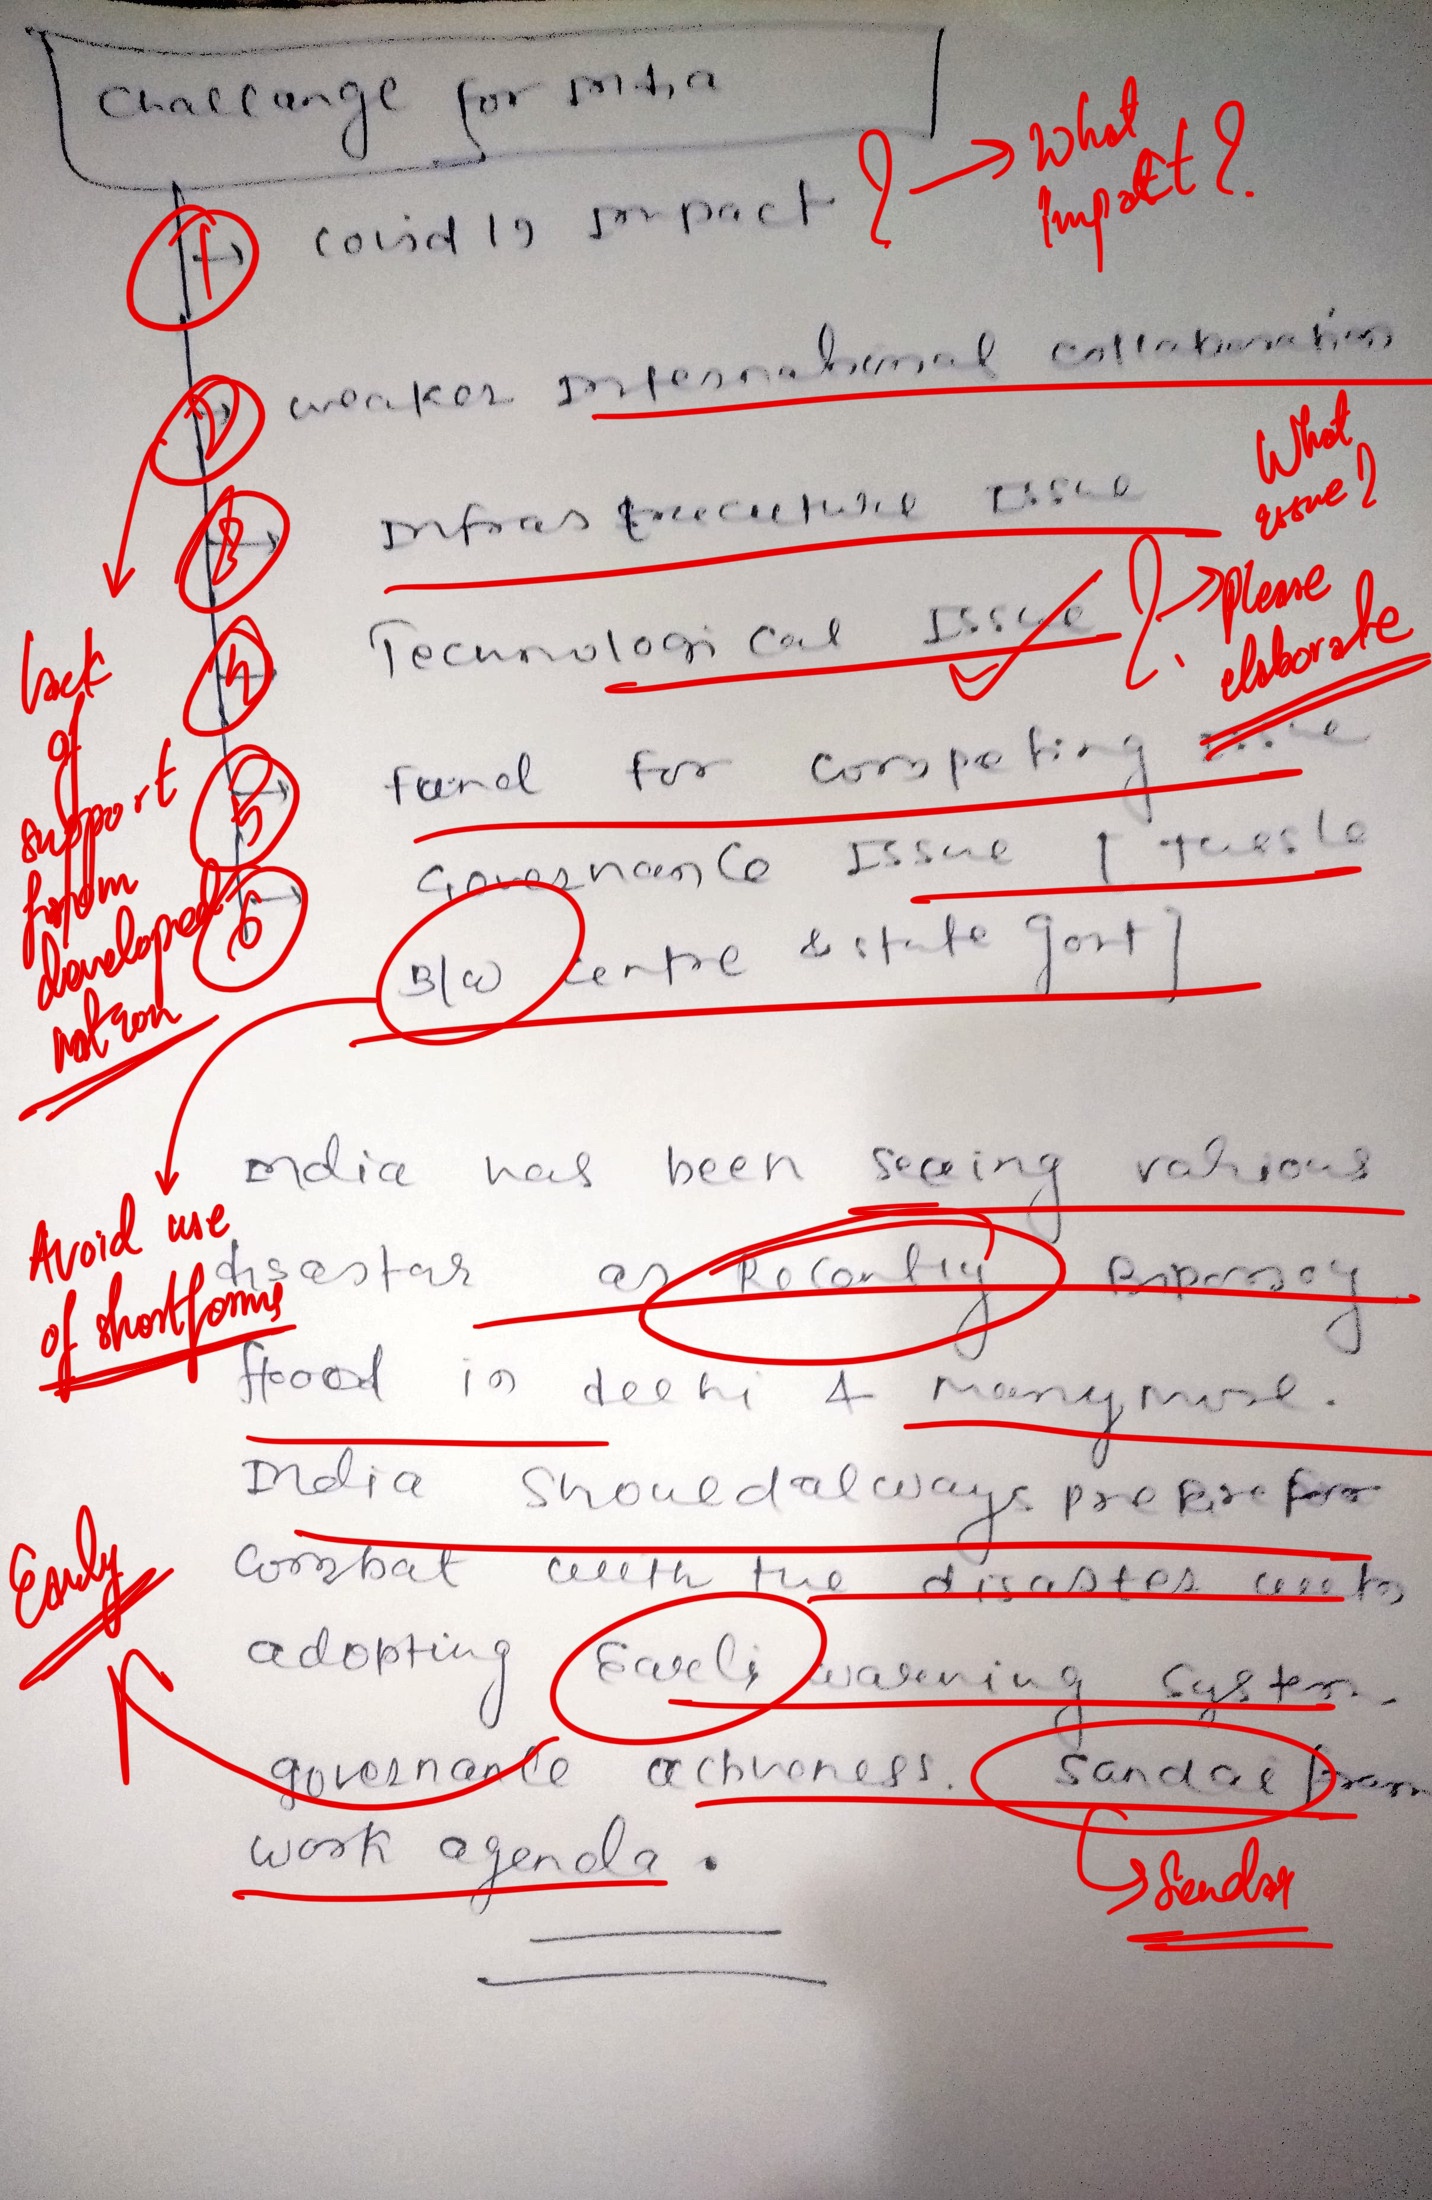 Challange for India
1 → Covid 19 Impact ? → What
Impact ?
2 → weaker International collaboration
3 → Infrastructure Issue
What
issue?
4 → Technological Issue ? → please
elaborate
5 → fund for
Issue
6 → Governance Issue [ tussle
B/w centre & state govt ]
lack
of
support
from
developed
nation
India has been seeing various
disaster as Recently
Avoid use
of shortforms
flood in delhi & many more.
India should always prepare for
combat with the disaster with
Early
adopting Earli warning system.
governance activeness. Sandai fram
work agenda.
→ Sendai